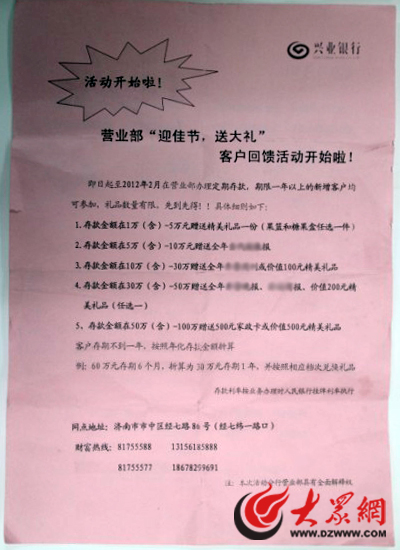 兴业银行
活动开始啦！
营业部“迎佳节，送大礼”
客户回馈活动开始啦！
即日起至2012年2月在营业部办理定期存款，期限一年以上的新增客户均
可参加，礼品数量有限，先到先得！！具体细则如下：
1.存款金额在1万（含）-5万元赠送精美礼品一份（果篮和糖果盒任选一件）
2.存款金额在5万（含）-10万元赠送全年 报
3.存款金额在10万（含）-30万赠送全年 或价值100元精美礼品
4.存款金额在30万（含）-50万赠送全年 报、 报、价值200元精
美礼品（任选一）
5、存款金额在50万（含）-100万赠送500元家政卡或价值500元精美礼品
客户存期不到一年，按照年化存款金额折算
例：60万元存期6个月，折算为30万元存期1年，并按照相应档次兑换礼品
存款利率按业务办理时人民银行挂牌利率执行
网点地址：济南市市中区经七路86号（经七纬一路口）
财富热线：81755588 13156185888
81755577 18678299691
注：本次活动分行营业部具有全面解释权
大眾網
WWW.DZWWW.COM